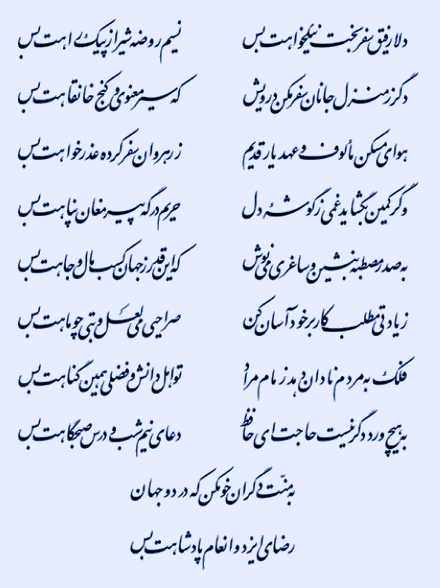 دلا رفیق سفر بخت نیکخواهت بس نسیم روضه شیراز پیک راهت بس
دگر ز منزل جانان سفر مکن درویش که سیر معنوی و کنج خانقاهت بس
هوای مسکن مألوف و عهد یار قدیم ز رهروان سفرکرده عذرخواهت بس
وگر کمین بگشاید غمی ز گوشه دل حریم درگه پیر مغان پناهت بس
به صدر مصطبه بنشین و ساغری می‌نوش که این قدر ز جهان کسب مال و جاهت بس
زیادتی مطلب کار بر خود آسان کن صراحی می لعل و بتی چو ماهت بس
فلک به مردم نادان دهد زمام مراد تو اهل دانش و فضلی همین گناهت بس
به هیچ ورد دگر نیست حاجت ای حافظ دعای نیم شب و درس صبحگاهت بس
به منت دگران خو مکن که در دو جهان
رضای ایزد و انعام پادشاهت بس